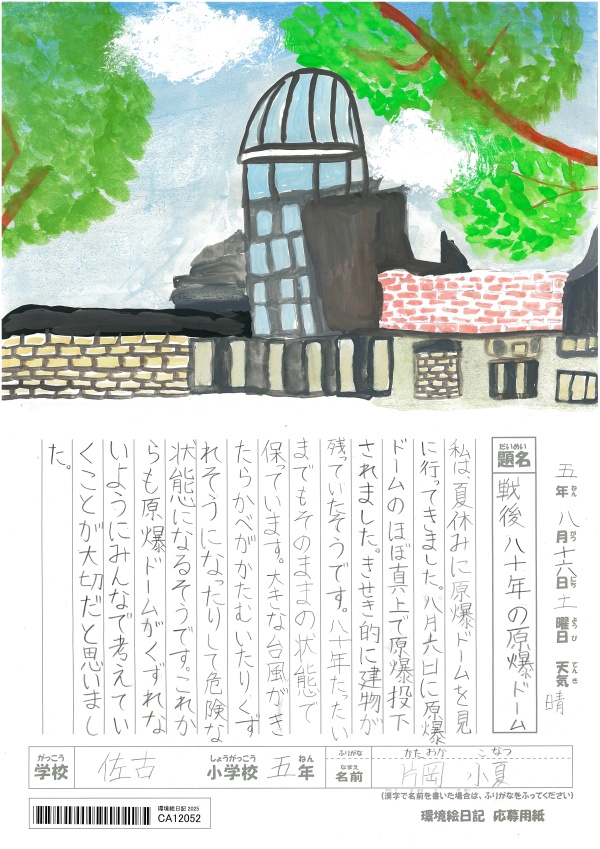 五年八月十六日土曜日 天気晴
ねん がつ にち よう び てんき
だいめい
題名 戦後八十年の原爆ドーム
私は、夏休みに原爆ドームを見
に行ってきました。八月六日に原爆
ドームのほぼ真上で原爆投下
されました。きせき的に建物が
残っていたそうです。八十年たったい
までもそのままの状態で
保っています。大きな台風がき
たらかべがかたむいたりくず
れそうになったりして危険な
状態になるそうです。これか
らも原爆ドームがくずれな
いようにみんなで考えてい
くことが大切だと思いまし
た。
がっこう しょうがっこう ねん ふりがな かたおか こなつ
学校 佐古 小学校 五年 なまえ 名前 片岡 小夏
(漢字で名前を書いた場合は、ふりがなをふってください)
環境絵日記 応募用紙
環境絵日記 2025
CA12052